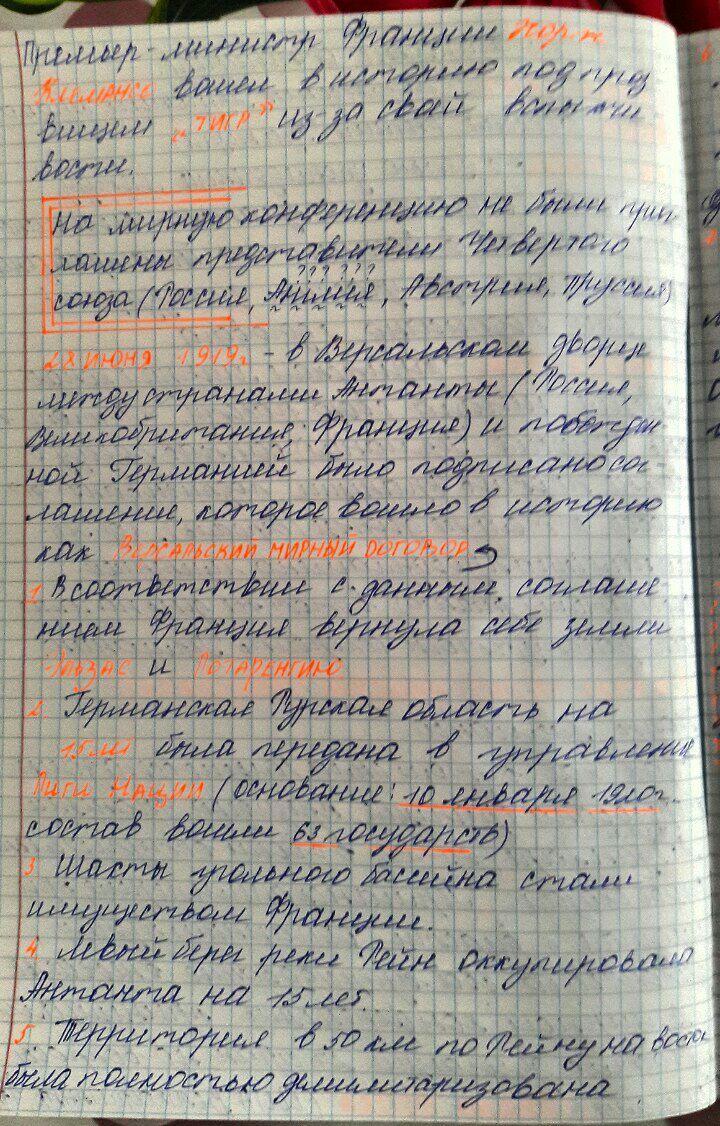 Премьер-министр Франции Жорж
Клемансо вошел в историю под проз
вищем „ТИГР” из за свой вспыльчи
вости.
На мирную конференцию не были приг
лашены представители Четвертого
? ? ? ? ? ?
союза (Россия, Англия, Австрия, Пруссия)
28 июня 1919г. - в Версальском дворце
между странами Антанты (Россия,
Великобритания, Франция) и побежден
ной Германией было подписано сог-
лашение, которое вошло в историю
как Версальский мирный договор
1. В соответствии с данным соглаше
нием Франция вернула себе земли
Эльзас и Лотарингию
2. Германская Рурская область на
15 лет была передана в управление
Лиги Нации (основание: 10 января 1920г.
состав вошли 63 государств)
3. Шахты угольного бассейна стали
имуществом Франции.
4. Левый берег реки Рейн оккупировала
Антанта на 15 лет.
5. Территория в 50 км по Рейну на восток
была полностью демилитаризована